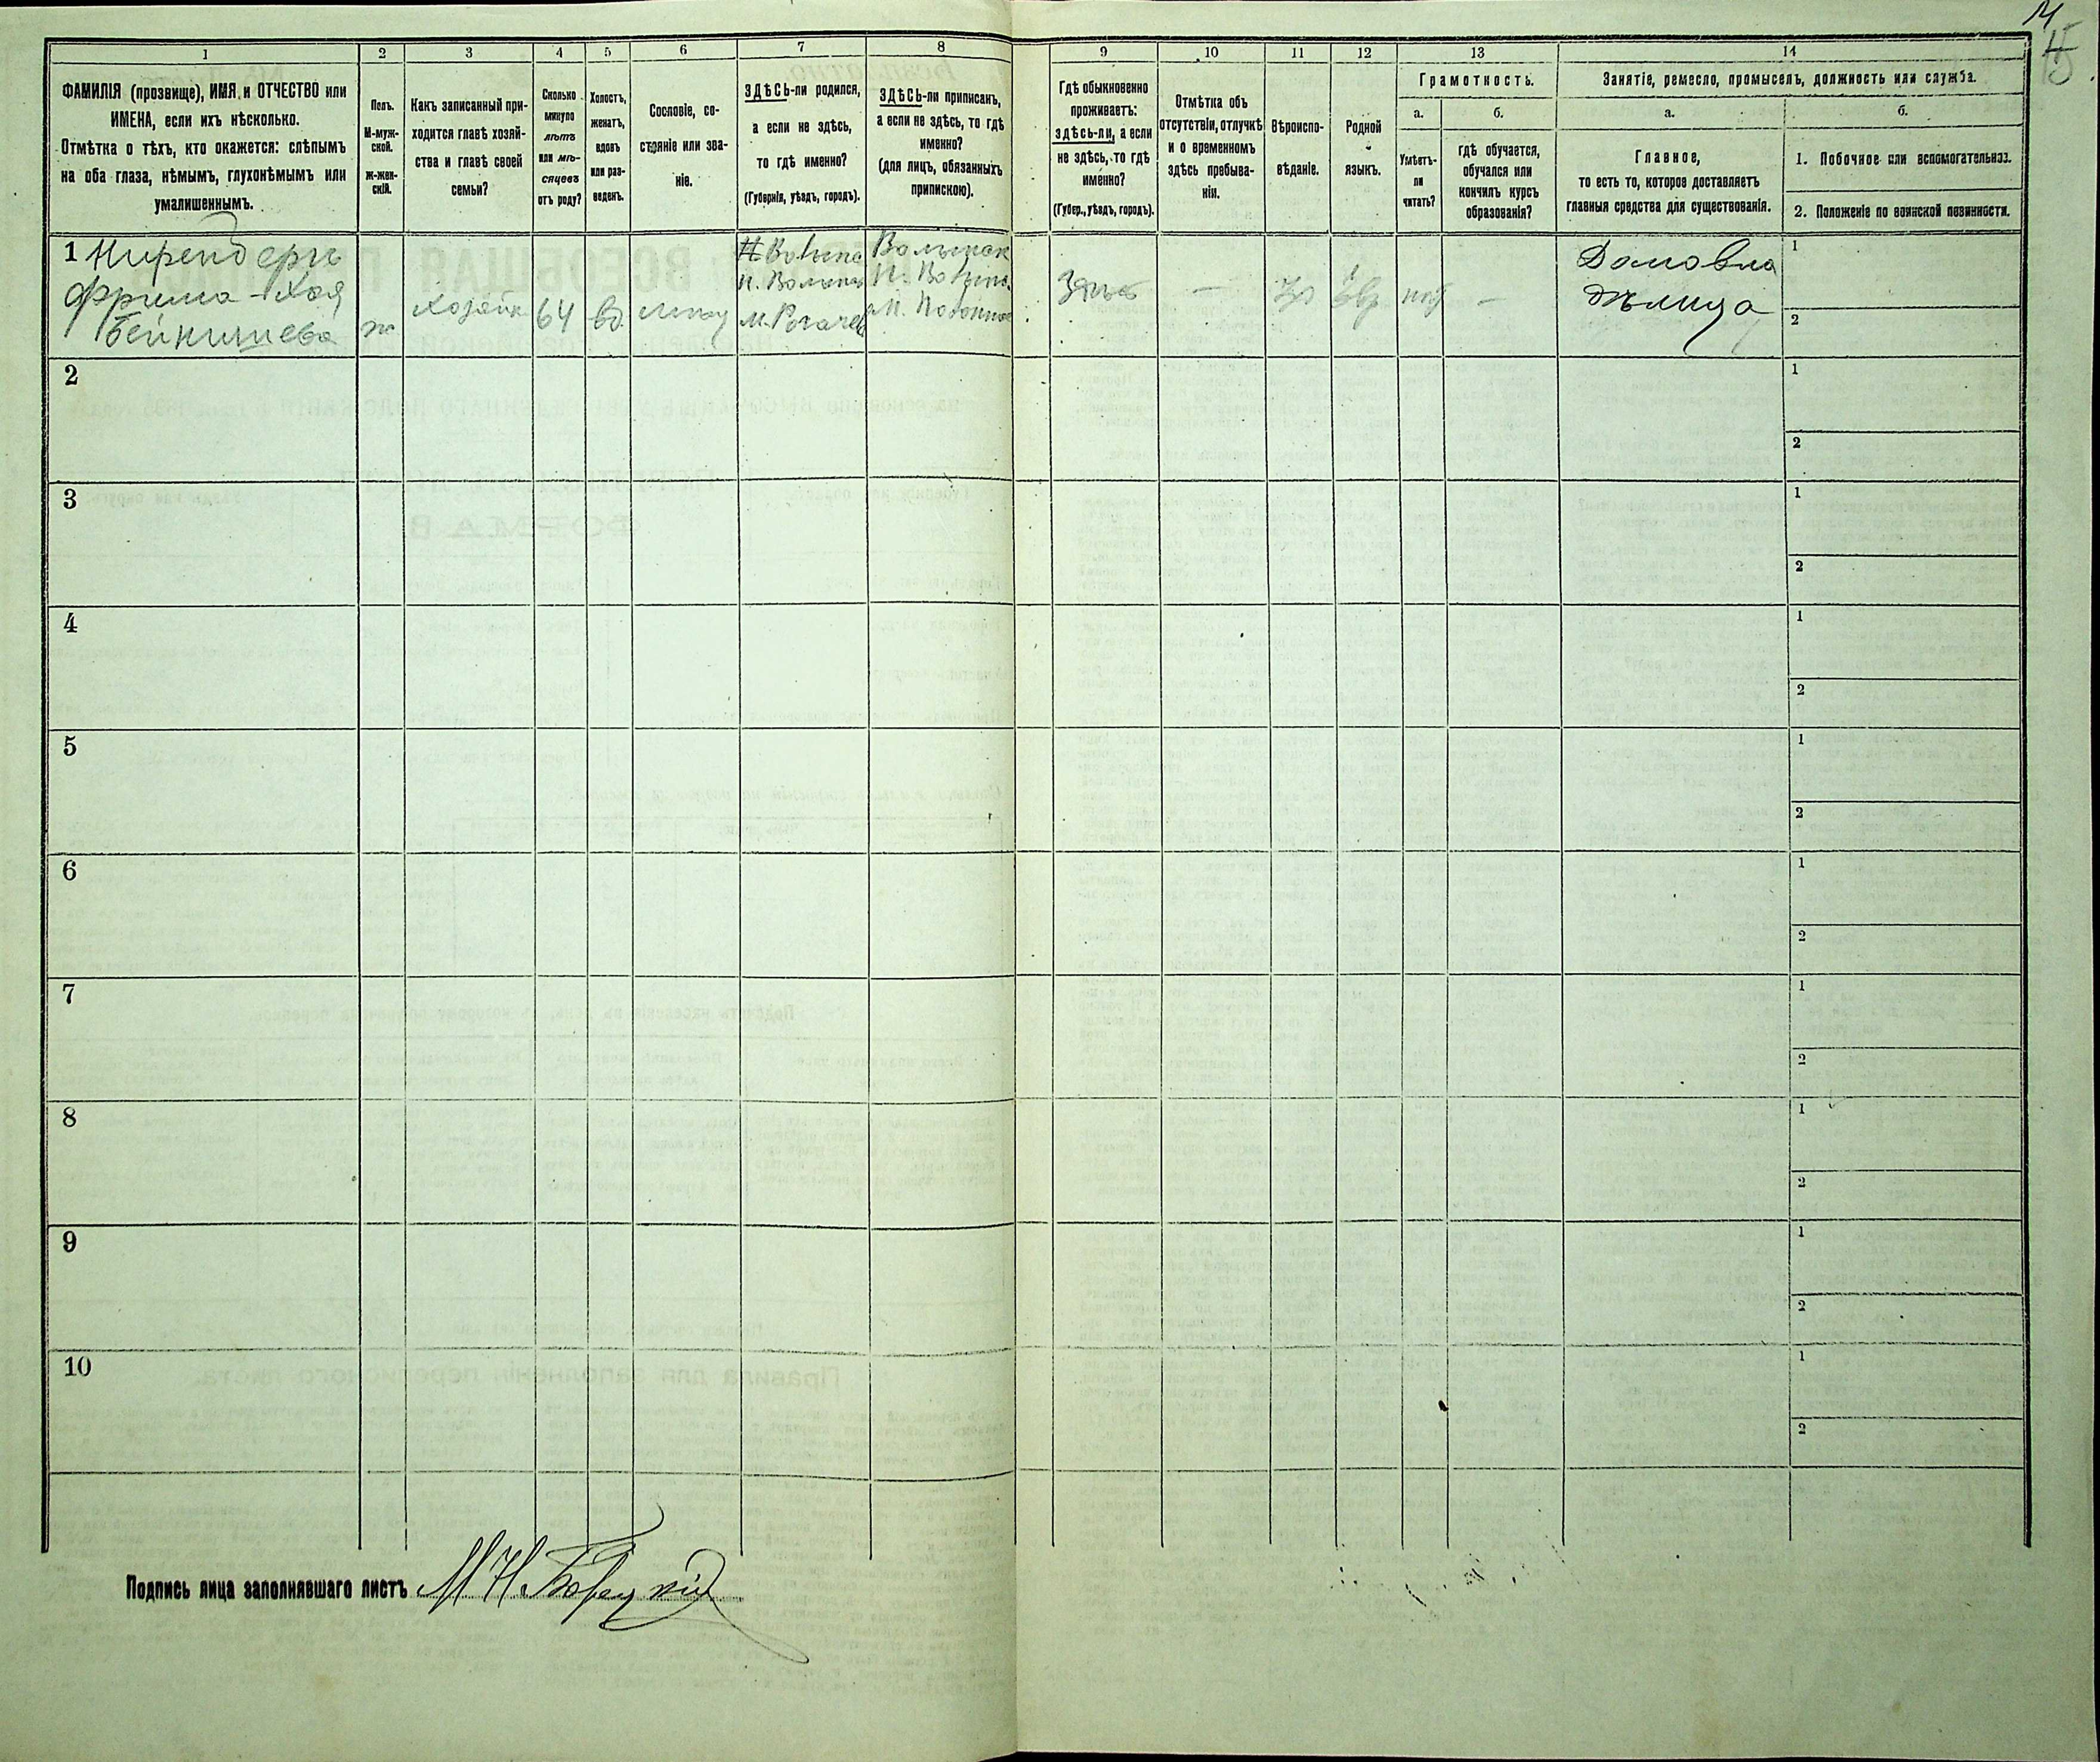 1
2
3
4
5
6
7
8
9
10
11
12
13
14
ФАМИЛІЯ (прозвище), ИМЯ и ОТЧЕСТВО или
ИМЕНА, если ихъ нѣсколько.
Отмѣтка о тѣхъ, кто окажется: слѣпымъ
на оба глаза, нѣмымъ, глухонѣмымъ или
умалишеннымъ.
Полъ.
М-муж-
ской.
ж-жен-
скій.
Какъ записанный при-
ходится главѣ хозяй-
ства и главѣ своей
семьи?
Сколько
минуло
лѣтъ
или мѣ-
сяцевъ
отъ роду?
Холостъ,
женатъ,
вдовъ
или раз-
веденъ.
Сословіе, со-
стояніе или зва-
ніе.
ЗДѢСЬ-ли родился,
а если не здѣсь,
то гдѣ именно?
(Губернія, уѣздъ, городъ).
ЗДѢСЬ-ли приписанъ,
а если не здѣсь, то гдѣ
именно?
(для лицъ, обязанныхъ
припискою).
Гдѣ обыкновенно
проживаетъ:
здѣсь-ли, а если
не здѣсь, то гдѣ
именно?
(Губер., уѣздъ, городъ).
Отмѣтка объ
отсутствіи, отлучкѣ
и о временномъ
здѣсь пребыва-
ніи.
Вѣроиспо-
вѣданіе.
Родной
языкъ.
Грамотность.
а.
Умѣетъ-
ли
читать?
б.
гдѣ обучается,
обучался или
кончилъ курсъ
образованія?
Занятіе, ремесло, промыселъ, должность или служба.
а.
Главное,
то есть то, которое доставляетъ
главныя средства для существованія.
б.
1. Побочное или вспомогательное.
2. Положеніе по воинской повинности.
1
Фрима-Хая
ж
Хозяйк
64
вд.
Н. Волынс
М. Рогачев
Здѣсь
—
—
Домовла
дѣлица
1
2
2
1
2
3
1
2
4
1
2
5
1
2
6
1
2
7
1
2
8
1
2
9
1
2
10
1
2
Подпись лица заполнявшаго листъ